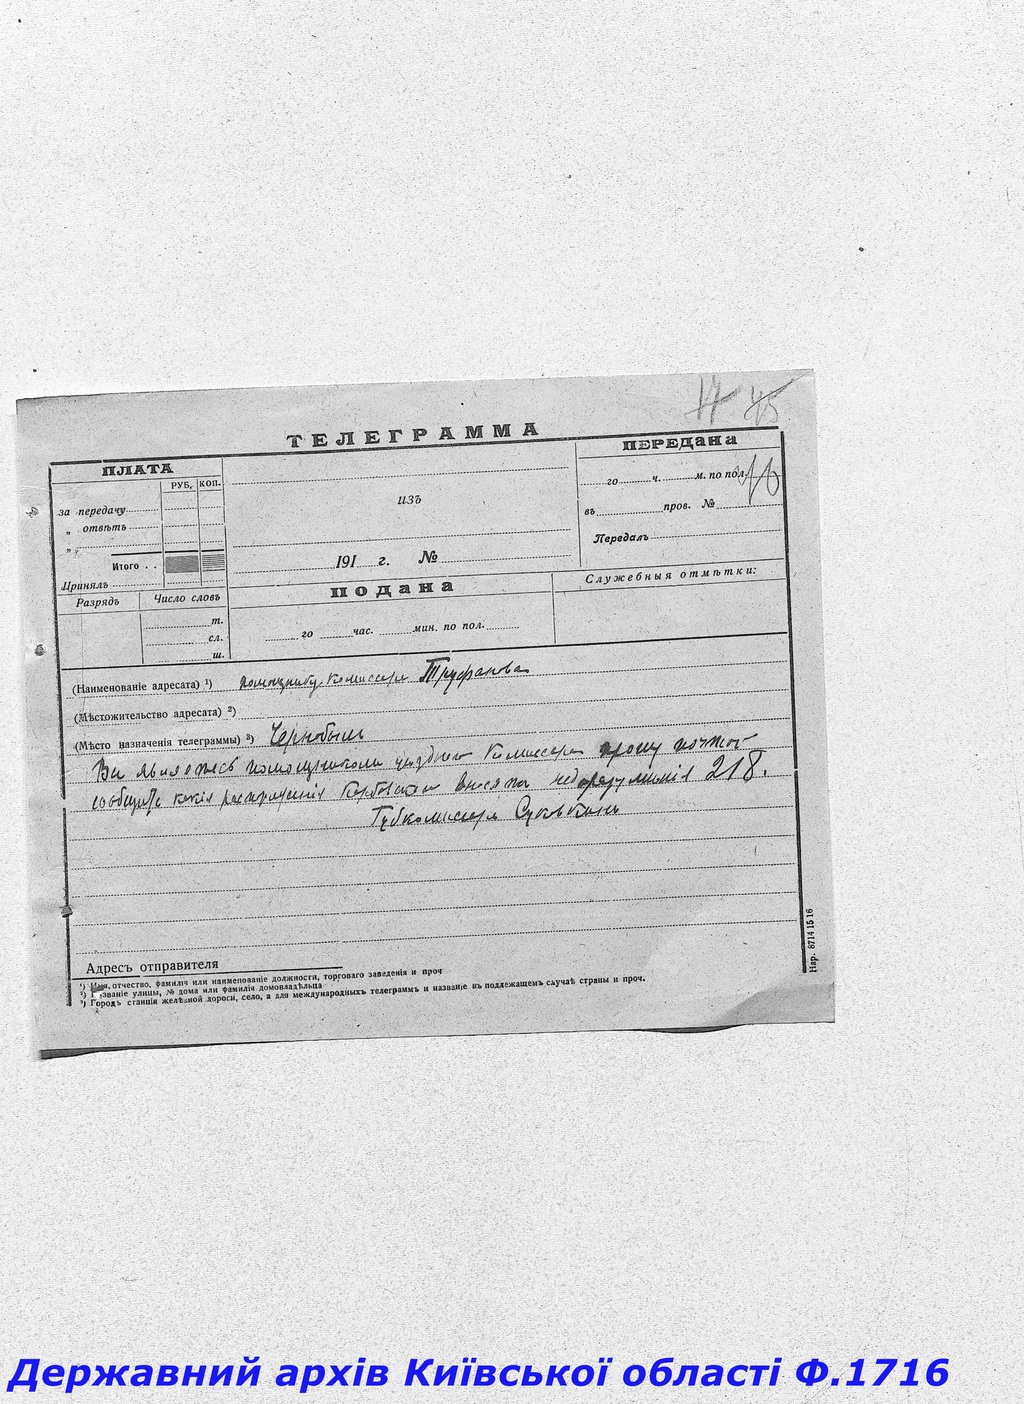 17 45
ТЕЛЕГРАММА
ПЛАТА
РУБ. КОП.
за передачу
„ отвѣтъ
„
Итого . .
Принялъ
Разрядъ Число словъ
т.
сл.
ш.
изъ
191 г. №
ПОДАНА
го час. мин. по пол.
ПЕРЕДАНА
го ч. м. по пол.
въ пров. №
16
Передалъ
Служебныя отмѣтки:
(Наименованіе адресата) ¹) помощнику комиссара Труфанова
(Мѣстожительство адресата) ²)
(Мѣсто назначенія телеграммы) ³) Чернобыль
Вы являетесь помощникомъ уѣзднаго Комиссара прошу почтой
сообщить какія распоряженія вносятъ недоразумѣнія 218.
Губкомиссаръ Суковкинъ
Адресъ отправителя
¹) Имя, отчество, фамилія или наименованіе должности, торговаго заведенія и проч
²) Названіе улицы, № дома или фамилія домовладѣльца
³) Городъ станція желѣзной дороги, село, а для международныхъ телеграммъ и названіе въ подлежащемъ случаѣ страны и проч.
Нар. 8714 15 16
Державний архів Київської області Ф.1716